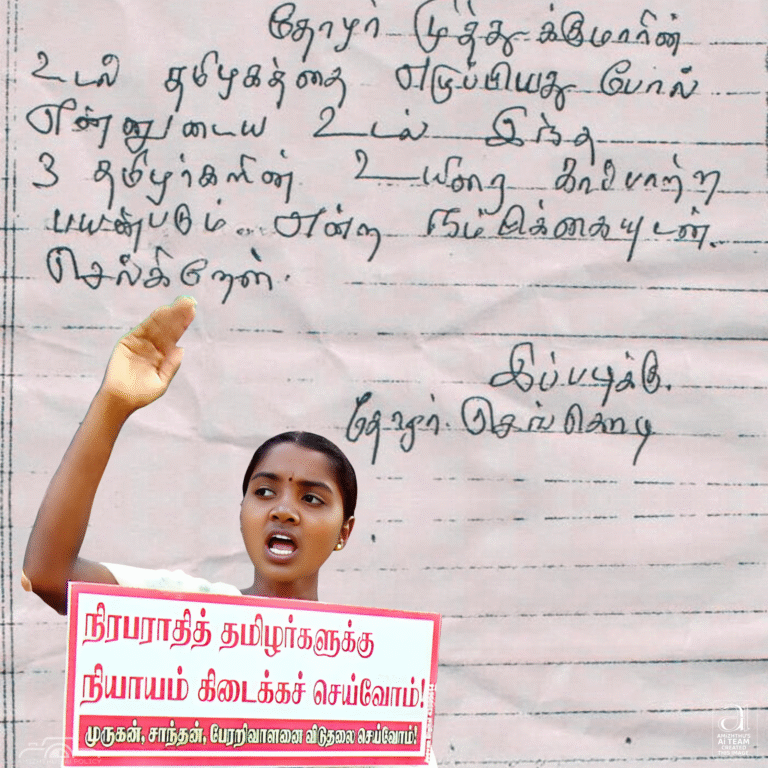 தோழர் முத்துக்குமாரின்
உடல் தமிழகத்தை எழுப்பியது போல்
என்னுடைய உடல் இந்த
3 தமிழர்களின் உயிரை காப்பாற்ற
பயன்படும். என்ற நம்பிக்கையுடன்.
செல்கிறேன்.
இப்படிக்கு.
தோழர். செங்கொடி
நிரபராதித் தமிழர்களுக்கு
நியாயம் கிடைக்கச் செய்வோம்!
முருகன், சாந்தன், பேரறிவாளனை விடுதலை செய்வோம்!
ai
AMIZHTHU'S
AI TEAM
CREATED
THIS IMAGE